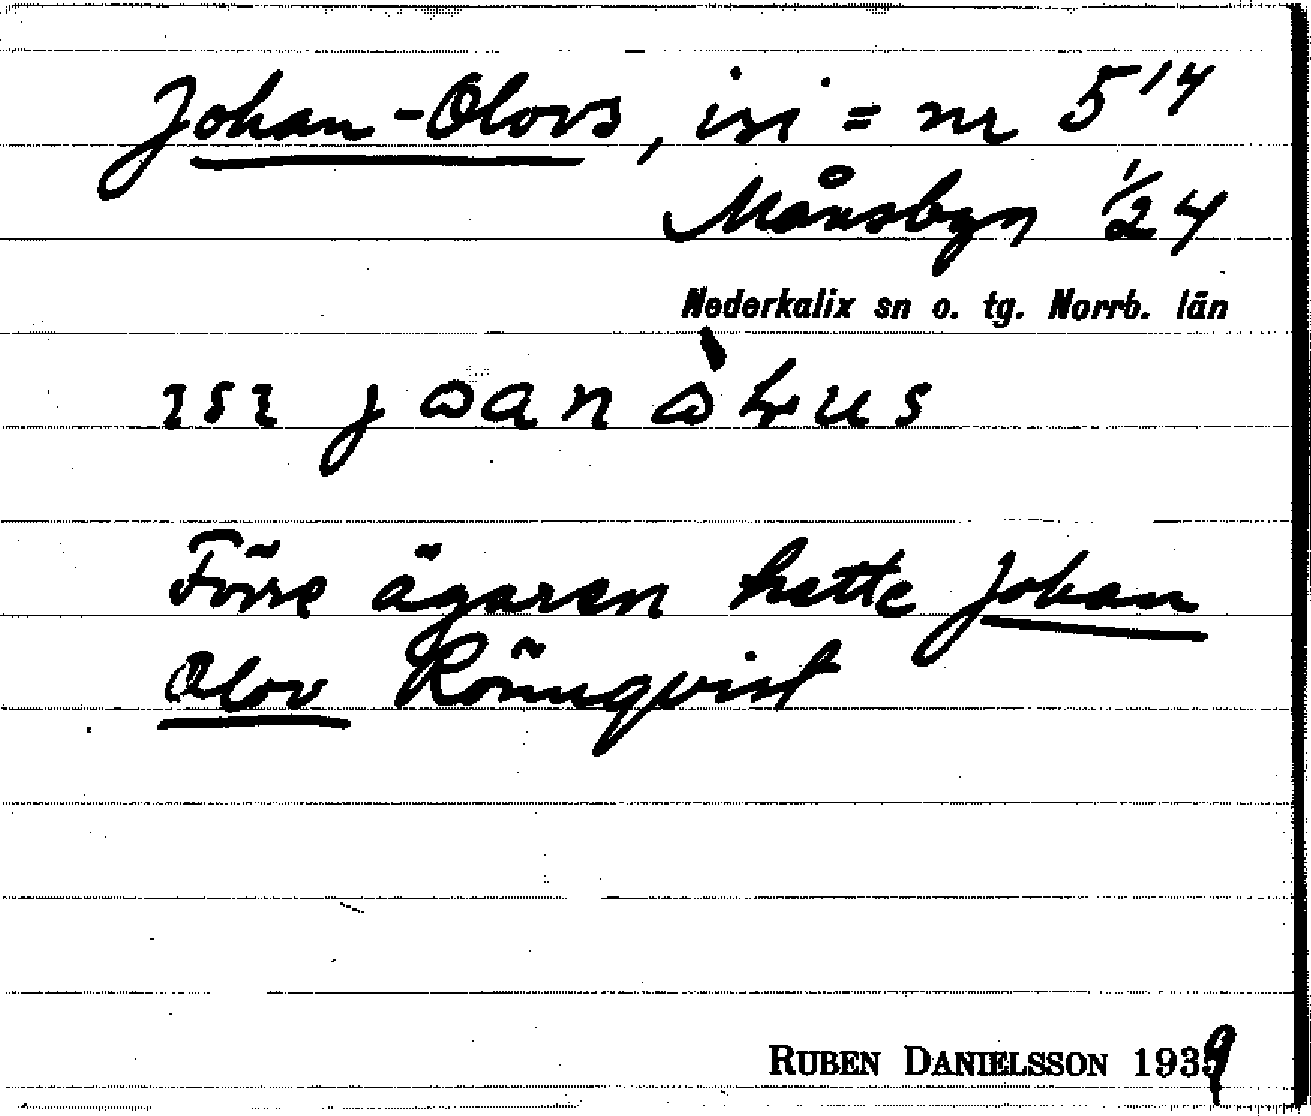 Johan-Olovs, isi = nr 5¹⁴
Månsbyn 1/24
Nederkalix sn o. tg. Norrb. län
ɪsɪ
Förre ägaren hette Johan
Olov Rönnqvist
RUBEN DANIELSSON 1939